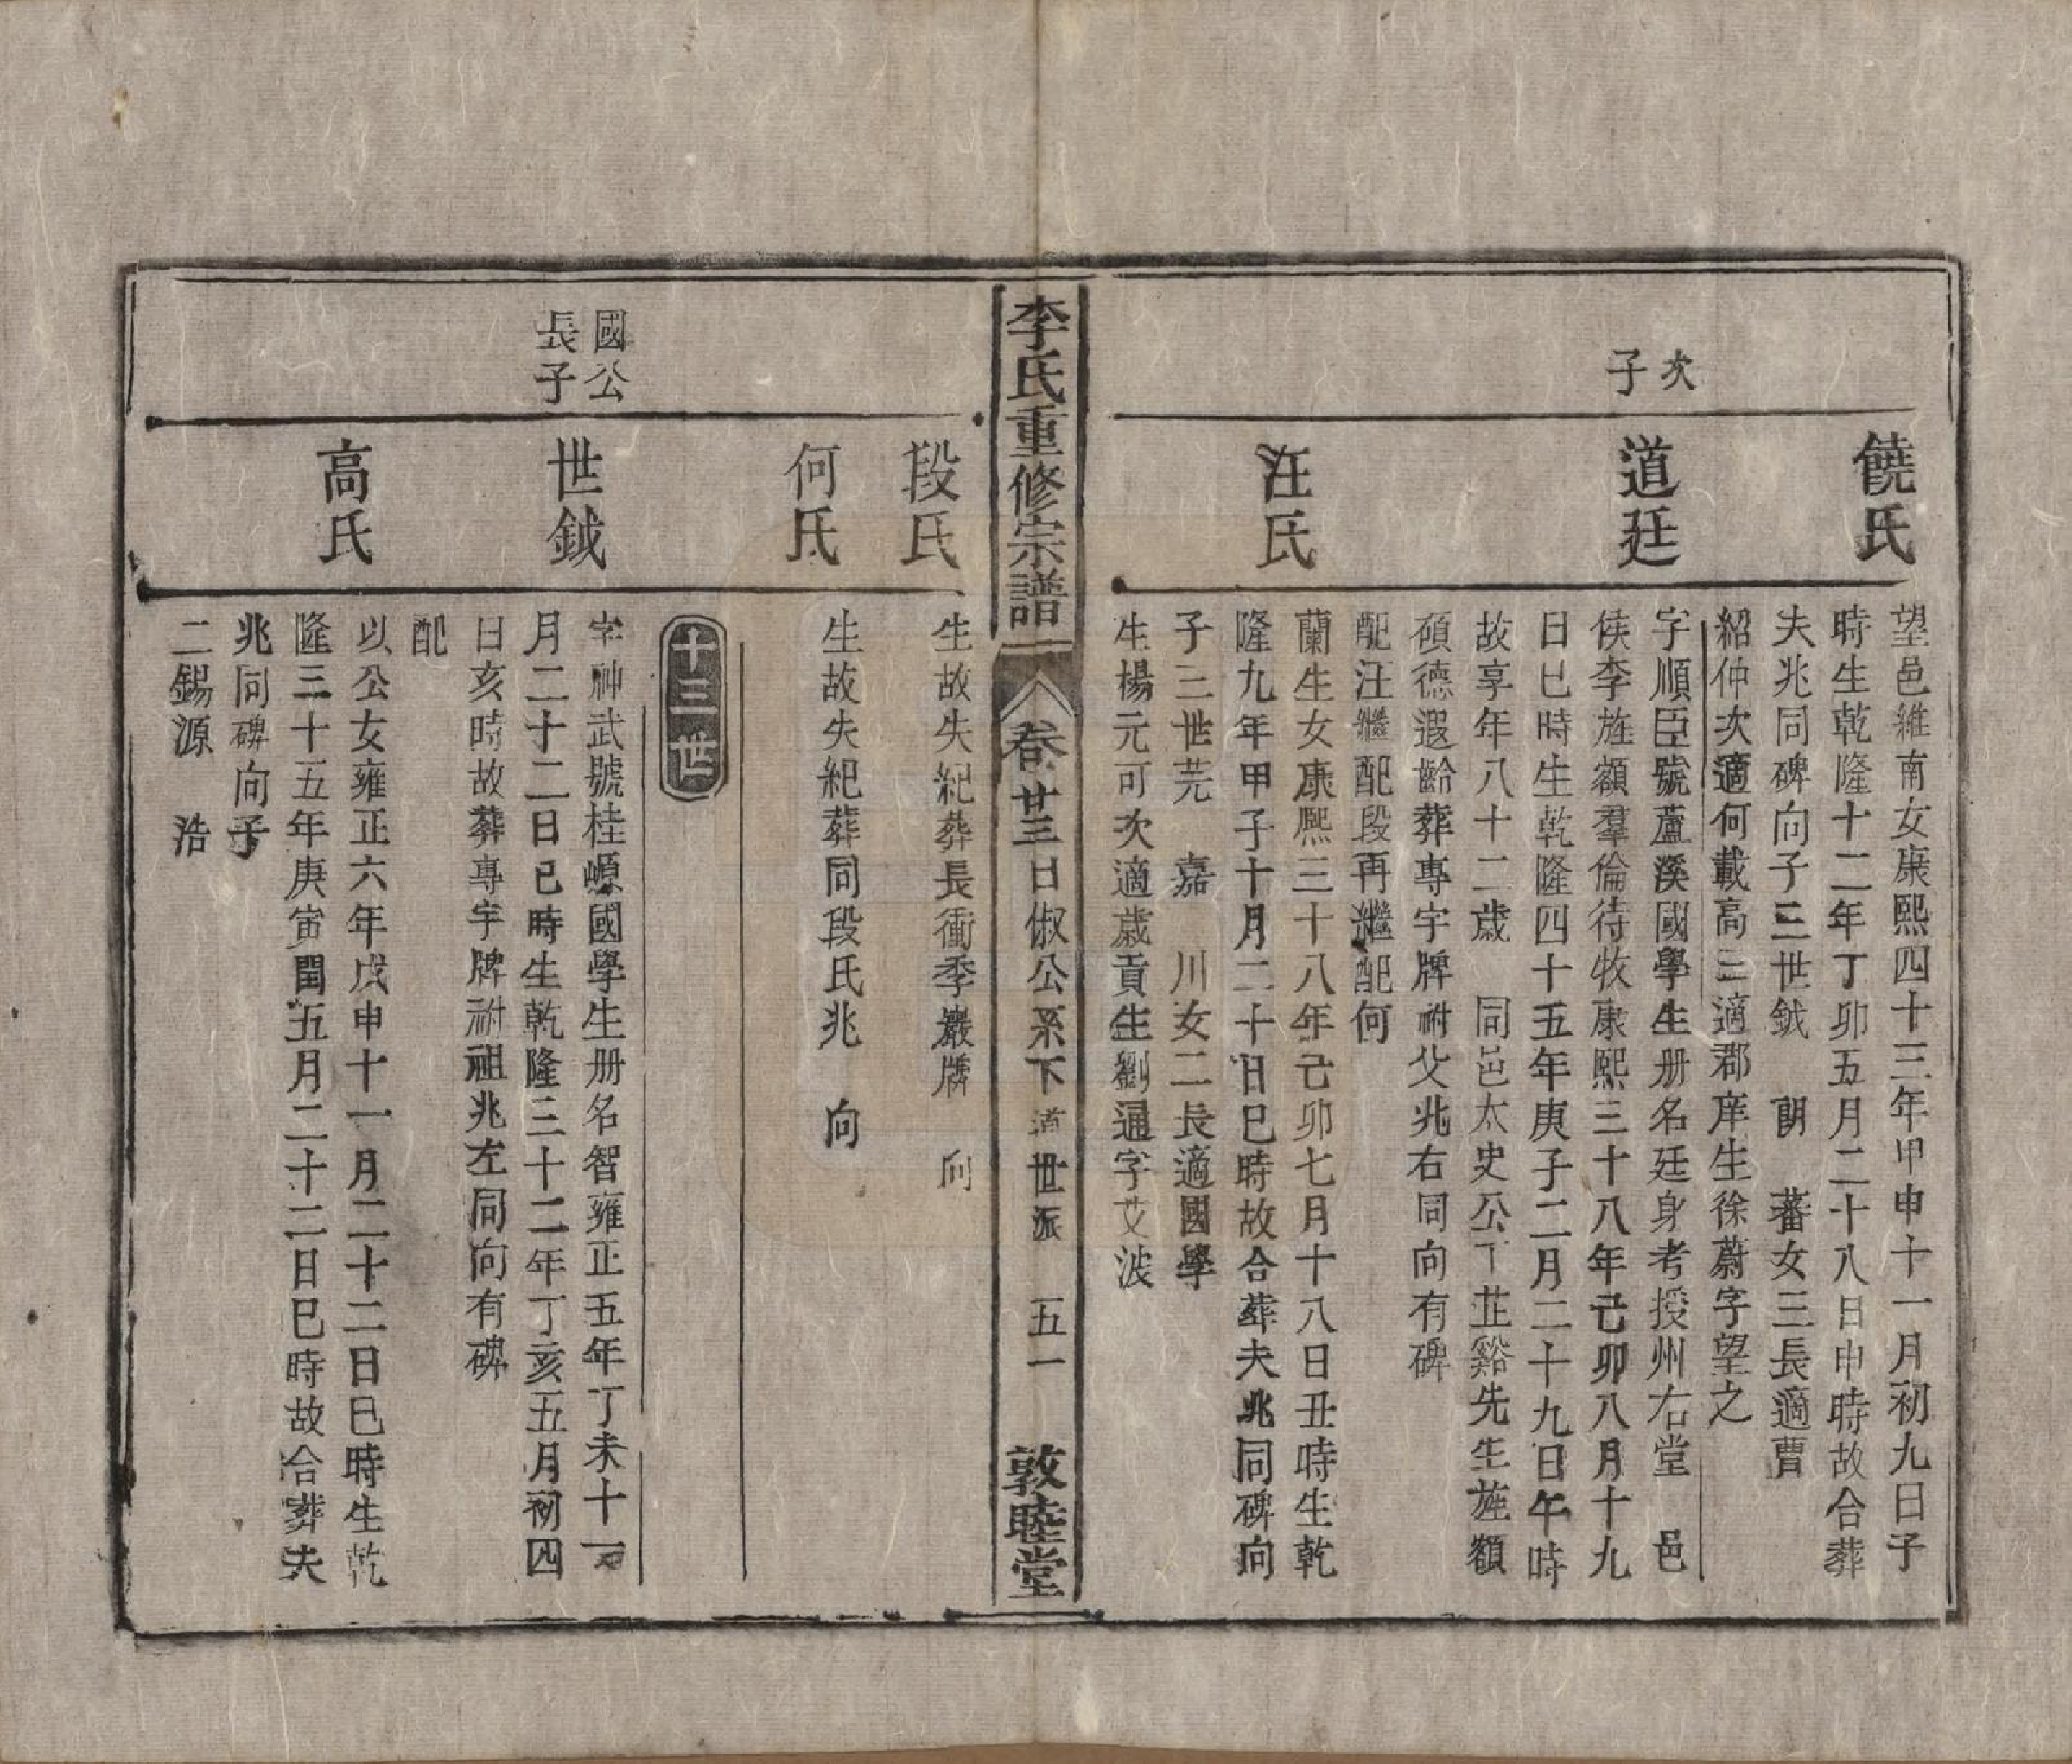 饒氏
望邑維南女康熙四十三年甲申十一月初九日子
時生乾隆十二年丁卯五月二十八日申時故合葬
夫兆同碑向子三世鉞 朗 蕃女三長適曹
紹仲次適何載高三適郡庠生徐蔚字望之
次
子
道廷
字順臣號蘆溪國學生册名廷身考授州右堂 邑
侯李旌額羣倫待牧康熙三十八年己卯八月十九
日巳時生乾隆四十五年庚子二月二十九日午時
故享年八十二歲 同邑太史公丁芷谿先生旌額
碩德遐齡葬專字牌祔父兆右同向有碑
配汪繼配段再繼配何
汪氏
蘭生女康熙三十八年己卯七月十八日丑時生乾
隆九年甲子十月二十日巳時故合葬夫兆同碑向
子三世芫 嘉 川女二長適國學
生楊元可次適歲貢生劉通字艾波
李氏重修宗譜 卷廿三日俶公系下道世派 五一 敦睦堂
段氏
生故失紀葬長衝季巖牌 向
何氏
生故失紀葬同段氏兆 向
十三世
國公
長子
世鉞
字神武號桂嫄國學生册名智雍正五年丁未十一
月二十二日巳時生乾隆三十二年丁亥五月初四
日亥時故葬專字牌祔祖兆左同向有碑
配
高氏
以公女雍正六年戊申十一月二十二日巳時生乾
隆三十五年庚寅閏五月二十二日巳時故合葬夫
兆同碑向子
二錫源 浩